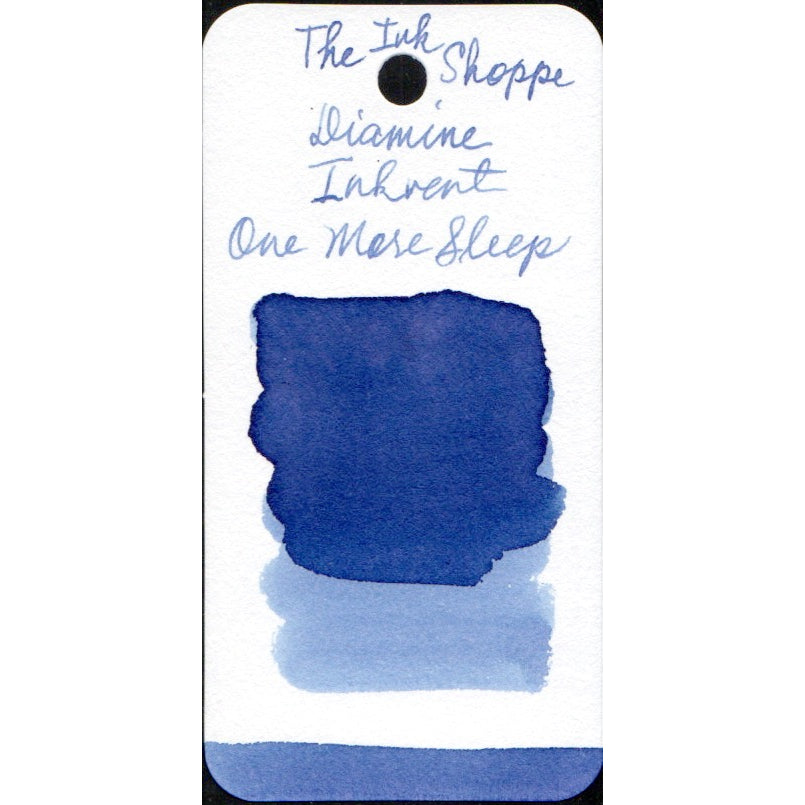 The Ink Shoppe
Diamine
Inkvent
One More Sleep